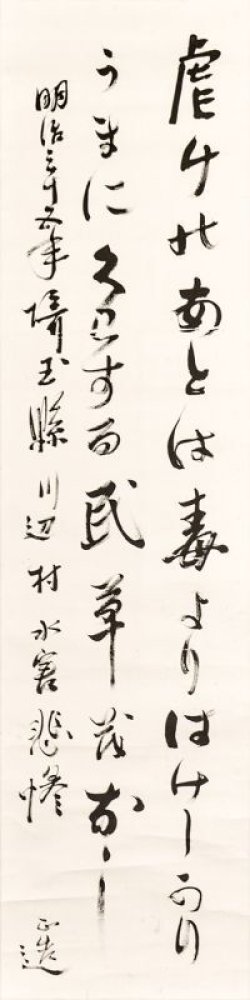 虐けのあとは毒よりはけしかり
うまに久わする民草茂なし
明治三十五年埼玉縣川辺村水害悲惨
正造